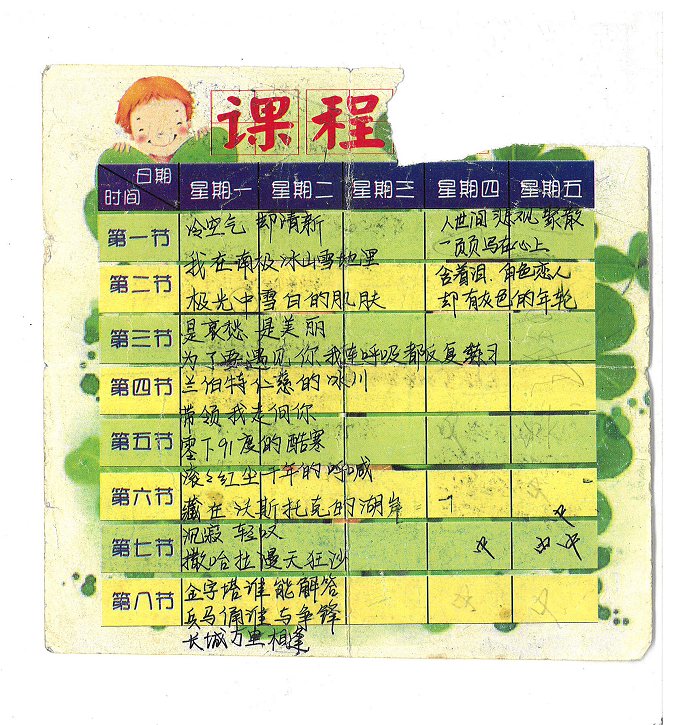 课程
日期
时间
星期一 星期二 星期三 星期四 星期五
第一节
第二节
第三节
第四节
第五节
第六节
第七节
第八节
冷空气 却清新
我在南极冰山雪地里
极光中雪白的肌肤
是哀愁 是美丽
为了要遇见你 我连呼吸都反复练习
兰伯特仁慈的冰川
带领我走向你
零下91度的酷寒
滚滚红尘千年的呼喊
藏在沃斯托克的湖岸
沉寂 轻叹
撒哈拉漫天狂沙
金字塔谁能解答
兵马俑谁与争锋
长城万里相逢
人世间悲欢聚散
一页页写在心上
含着泪.角色恋人
却有灰色的年轮
中
中
中中